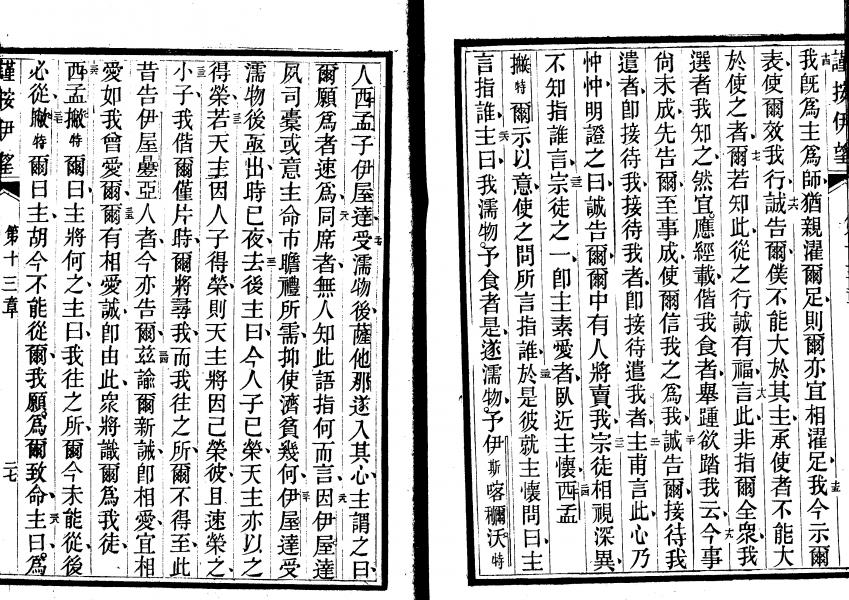 我既爲主爲師猶親濯爾足則爾亦宜相濯足我今示爾
表使爾效我行誠告爾僕不能大於其主承使者不能大
於使之者爾若知此從之行誠有福言此非指爾全衆我
選者我知之然宜應經載偕我食者舉踵欲踏我云今事
尙未成先告爾至事成使爾信我之爲我誠告爾接待我
遣者卽接待我接待我者卽接待遣我者主甫言此心乃
忡忡明證之曰誠告爾爾中有人將賣我宗徒相視深異
不知指誰言宗徒之一卽主素愛者臥近主懷西孟
撇特爾示以意使之問所言指誰於是彼就主懷問曰主
言指誰主曰我濡物予食者是遂濡物予伊斯喀穪沃特
謹按伊望
人西孟子伊屋達受濡物後薩他那遂入其心主謂之曰
爾願爲者速爲同席者無人知此語指何而言因伊屋達
夙司橐或意主命市瞻禮所需抑使濟貧幾何伊屋達受
濡物後亟出時已夜去後主曰今人子已榮天主亦以之
得榮若天主因人子得榮則天主將因己榮彼且速榮之
小子我偕爾僅片時爾將尋我而我往之所爾不得至此
昔告伊屋疊亞人者今亦告爾茲諭爾新誡卽相愛宜相
愛如我曾愛爾爾有相愛誠卽由此衆將識爾爲我徒
西孟撇特爾曰主將何之主曰我往之所爾今未能從後
必從撇特爾曰主胡今不能從爾我願爲爾致命主曰爲
謹按伊望
第十三章
二七